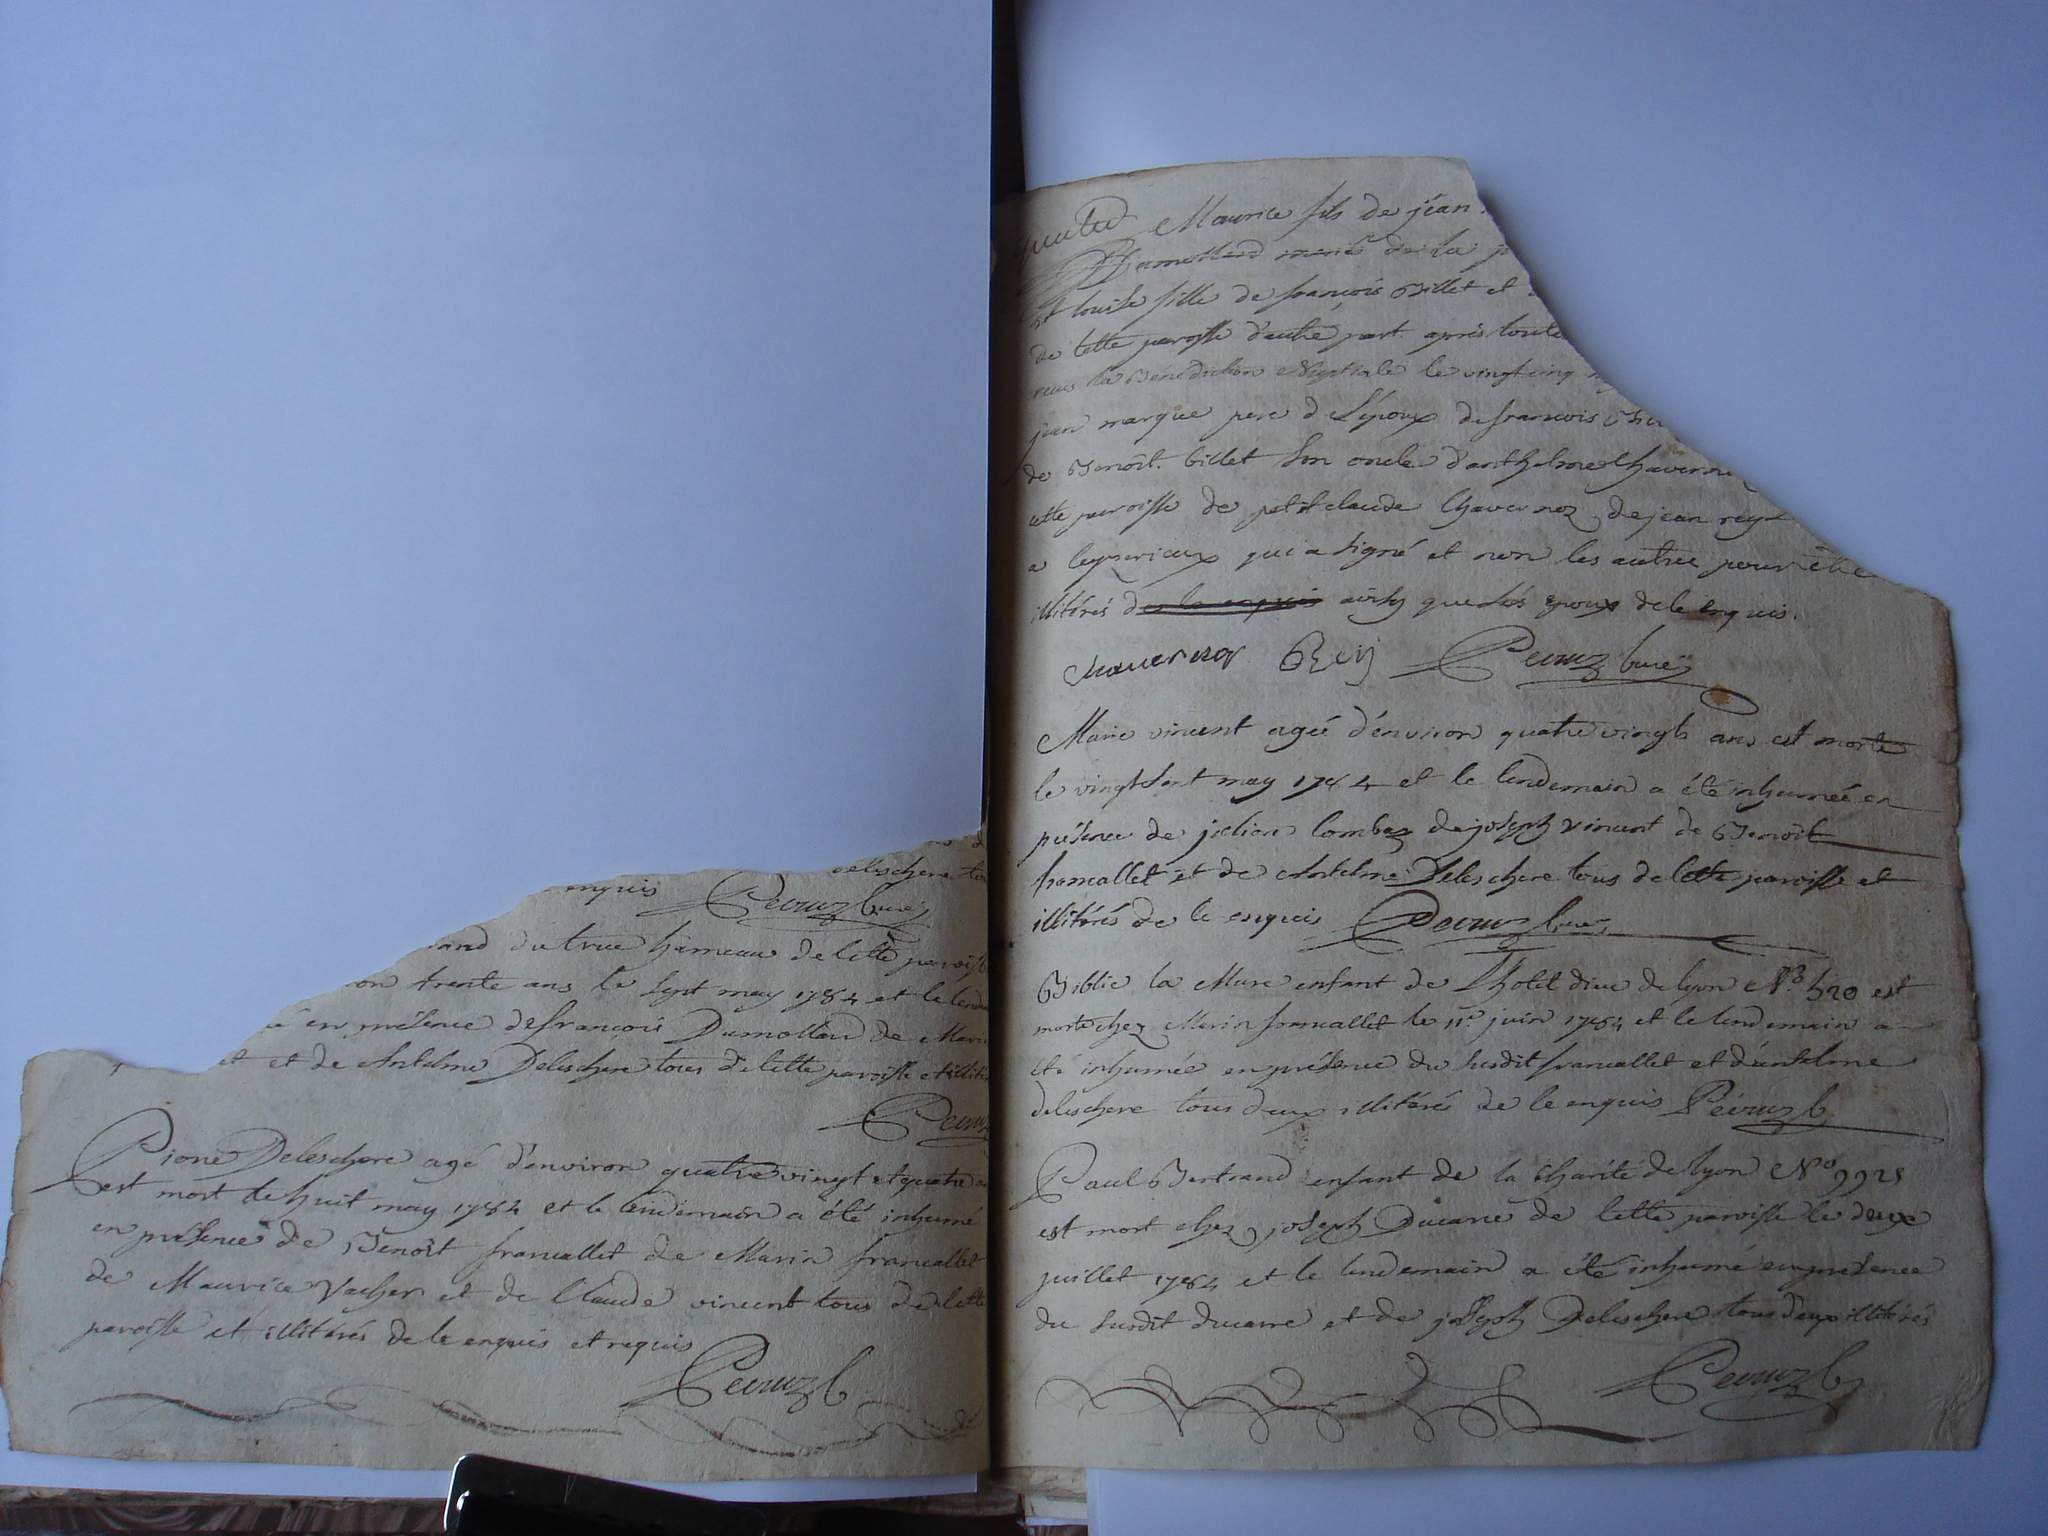 deleschere
enquis Peiruz Curé
du true hameau de cette paroiss
trente ans le sept may 1784 et le lende
en présence de françois Dumollard de Marin
et de Antelme Deleschere tous de cette paroisse et illite
Peiruz
Deleschere agé d'environ quatre vingt et quatre
est mort le huit may 1784 et le lendemain a été inhumé
en présence de Benoit francallet de Marin francallet
de Maurice Vacher et de Claude vincent tous de cette
paroisse et illitérés de ce enquis et requis
Peiruz C
Maurice fils de jéan
de la
et louise fille de françois Billet et
de cette paroisse d'autre part après toute
la Bénédiction Nuptiale le vingt cinq
jean marque pere de L'époux de francois
de Benoit billet son oncle d'anthelme Chaverno
cette paroisse de petit claude Chavernoz de jean rey
a leyssrieux qui a signé et non les autres pour être
illitérés de ce enquis ainsy que les epoux de ce enquis.
chavernoz Rey Peiruz Curé
Marie vincent agée d'environ quatre vingts ans est morte
le vingt sept may 1784 et le lendemain a été inhumée en
présence de julien Combaz de joseph vincent de Benoit
francallet et de Antelme Deleschere tous de cette paroisse et
illitérés de ce enquis Peiruz Curé
Biblie la Mure enfant de L'hotel dieu de lyon N.o 520 est
morte chez Marin francallet le 11e juin 1784 et le lendemain a
été inhumée en présence du susdit francallet et d'antelme
deleschere tous deux illitérés de ce enquis Peiruz C
Paul Bertrand enfant de la Charité de lyon No 9925
est mort chez joseph Ducarre de cette paroisse le deux
juillet 1784 et le lendemain a été inhumé en présence
du susdit ducarre et de joseph Deleschere tous deux illitérés
Peiruz C